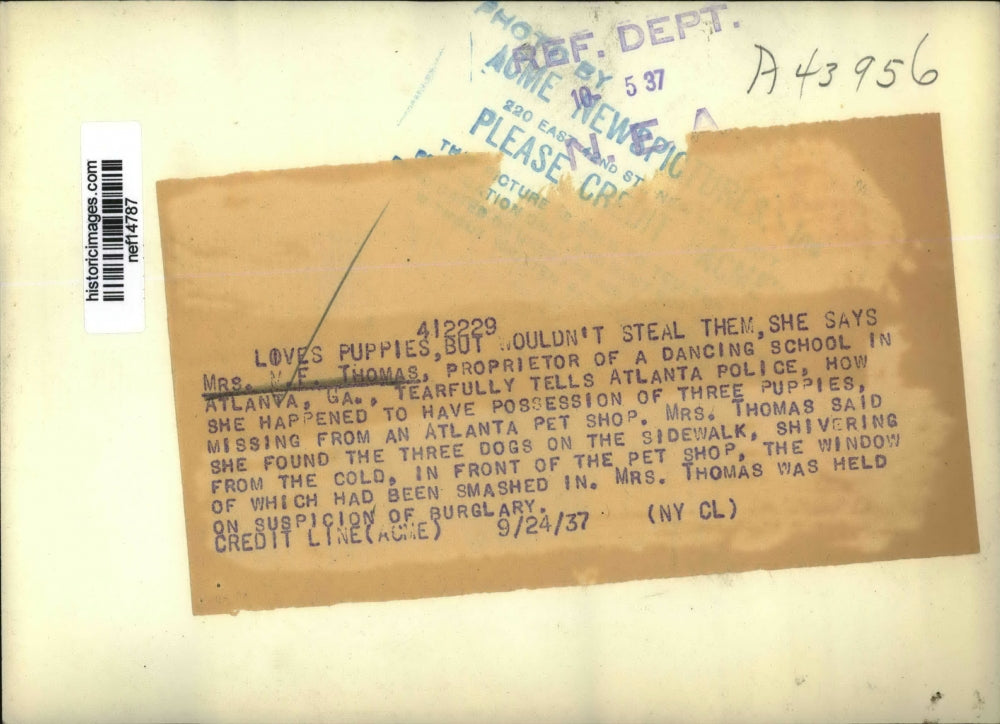 REF. DEPT.
10- 5 37
N. E A
A43956
PHOTO BY
ACME NEWSPICTURES, Inc
220 EAST 42ND ST
PLEASE CREDIT
ACME
historicimages.com
nef14787
412229
LOVES PUPPIES, BUT WOULDN'T STEAL THEM, SHE SAYS
MRS. E. THOMAS, PROPRIETOR OF A DANCING SCHOOL IN
ATLANTA, GA., TEARFULLY TELLS ATLANTA POLICE, HOW
SHE HAPPENED TO HAVE POSSESSION OF THREE PUPPIES,
MISSING FROM AN ATLANTA PET SHOP. MRS. THOMAS SAID
SHE FOUND THE THREE DOGS ON THE SIDEWALK, SHIVERING
FROM THE COLD, IN FRONT OF THE PET SHOP, THE WINDOW
OF WHICH HAD BEEN SMASHED IN. MRS. THOMAS WAS HELD
ON SUSPICION OF BURGLARY.
CREDIT LINE(ACME) 9/24/37 (NY CL)